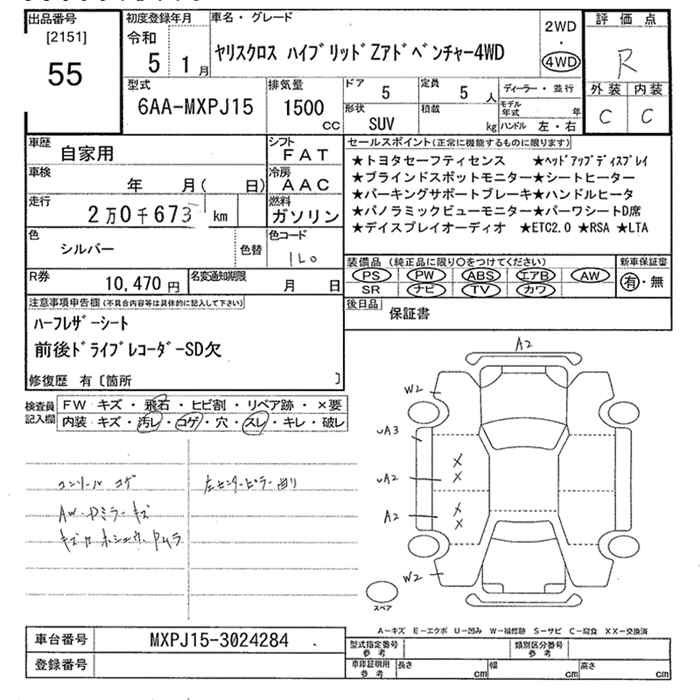 出品番号
[2151]
55
初度登録年月
令和
5 1月
車名・グレード
ヤリスクロス ハイブリッドZアドベンチャー4WD
2WD
・
4WD
評価点
R
外装 内装
C C
型式
6AA-MXPJ15
排気量
1500
CC
ドア
5
定員
5 人
形状
SUV
積載
kg
ディーラー・並行
モデル年式 年
ハンドル 左・右
車歴
自家用
シフト
FAT
車検
年 月( 日)
冷房
AAC
走行
2万0千673 km
燃料
ガソリン
色
シルバー
色替
色コード
1L0
R券
10,470円
名変通知期限
月 日
セールスポイント(正常に機能するものに限ります)
★トヨタセーフティセンス ★ヘッドアップディスプレイ
★ブラインドスポットモニター★シートヒーター
★パーキングサポートブレーキ★ハンドルヒータ
★パノラミックビューモニター★パーワシートD席
★デイスプレイオーディオ ★ETC2.0 ★RSA ★LTA
装備品(純正品に限り○をつけてください)
PS PW ABS エアB AW
SR ナビ TV カワ
新車保証書
有・無
後日品
保証書
注意事項申告欄(不具合内容等は具体的に記入して下さい)
ハーフレザーシート
前後ドライブレコーダーSD欠
修復歴 有〔箇所 〕
検査員記入欄
FW キズ・飛石・ヒビ割・リペア跡・×要
内装 キズ・汚レ・コゲ・穴・スレ・キレ・破レ
コンソール コゲ
左センターピラー曲り
AW・Dミラーキズ
A2
W2
uA3
uA2
A2
W2
スペア
A-キズ E-エクボ U-凹み W-補修跡 S-サビ C-腐食 XX-交換済
車台番号
MXPJ15-3024284
登録番号
型式指定番号
参考
類別区分番号
参考
車庫証明用
参考
長さ cm 幅 cm 高さ cm